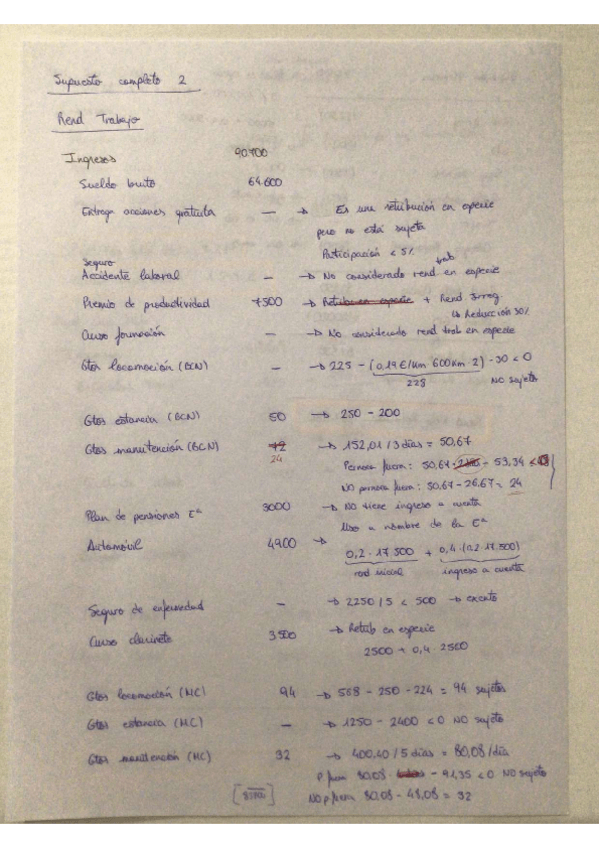 Supuesto completo 2
Rend Trabajo
Ingresos 90.700
Sueldo bruto 64.600
Entrega acciones gratuita — → Es una retribución en especie
pero no está sujeta
Participación < 5%
Seguro trab
Accidente laboral — → No considerado rend en especie
Premio de productividad 7500 → Retrib en especie + Rend Irreg.
↳ Reducción 30%
Curso formación — → No considerado rend trab en especie
Gtos locomoción (BCN) — → 225 - (0,19€/Km 600Km 2) - 30 < 0
228 NO sujeto
Gtos estancia (BCN) 50 → 250 - 200
Gtos manutención (BCN) 72 → 152,01 / 3 días = 50,67
24 Pernocta fuera: 50,67 - 53,34 < 0
NO pernocta fuera: 50,67 - 26,67 = 24
Plan de pensiones Eª 3000 → No tiene ingreso a cuenta
Uso a nombre de la Eª
Automóvil 4900 → 0,2 · 17.500 + 0,4 · (0,2 · 17.500)
rend inicial ingreso a cuenta
Seguro de enfermedad — → 2250 / 5 < 500 → exento
Curso clarinete 3500 → Retrib en especie
2500 + 0,4 · 2500
Gtos locomoción (MC) 94 → 568 - 250 - 224 = 94 sujetos
Gtos estancia (MC) — → 1250 - 2400 < 0 NO sujeto
Gtos manutención (MC) 32 → 400,40 / 5 días = 80,08 / día
P fuera 80,08 - 91,35 < 0 NO sujeto
NO p fuera 80,08 - 48,08 = 32